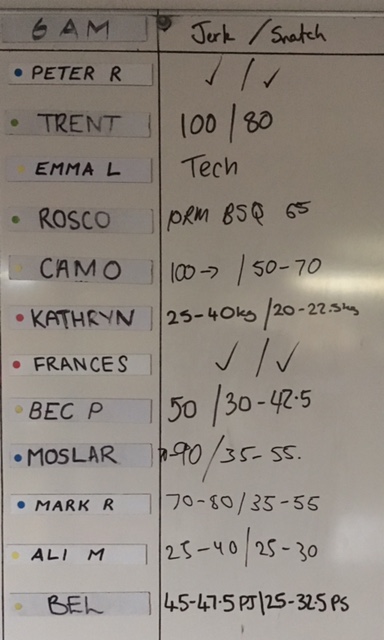 6 AM Jerk / Snatch
PETER R ✓ / ✓
TRENT 100 / 80
EMMA L Tech
ROSCO BSQ 65
CAMO 100 → / 50-70
KATHRYN 25-40kg / 20-22.5kg
FRANCES ✓ / ✓
BEC P 50 / 30-42.5
MOSLAR -90 / 35-55.
MARK R 70-80 / 35-55
ALI M 25-40 / 25-30
BEL 45-47.5 PJ | 25-32.5 PS